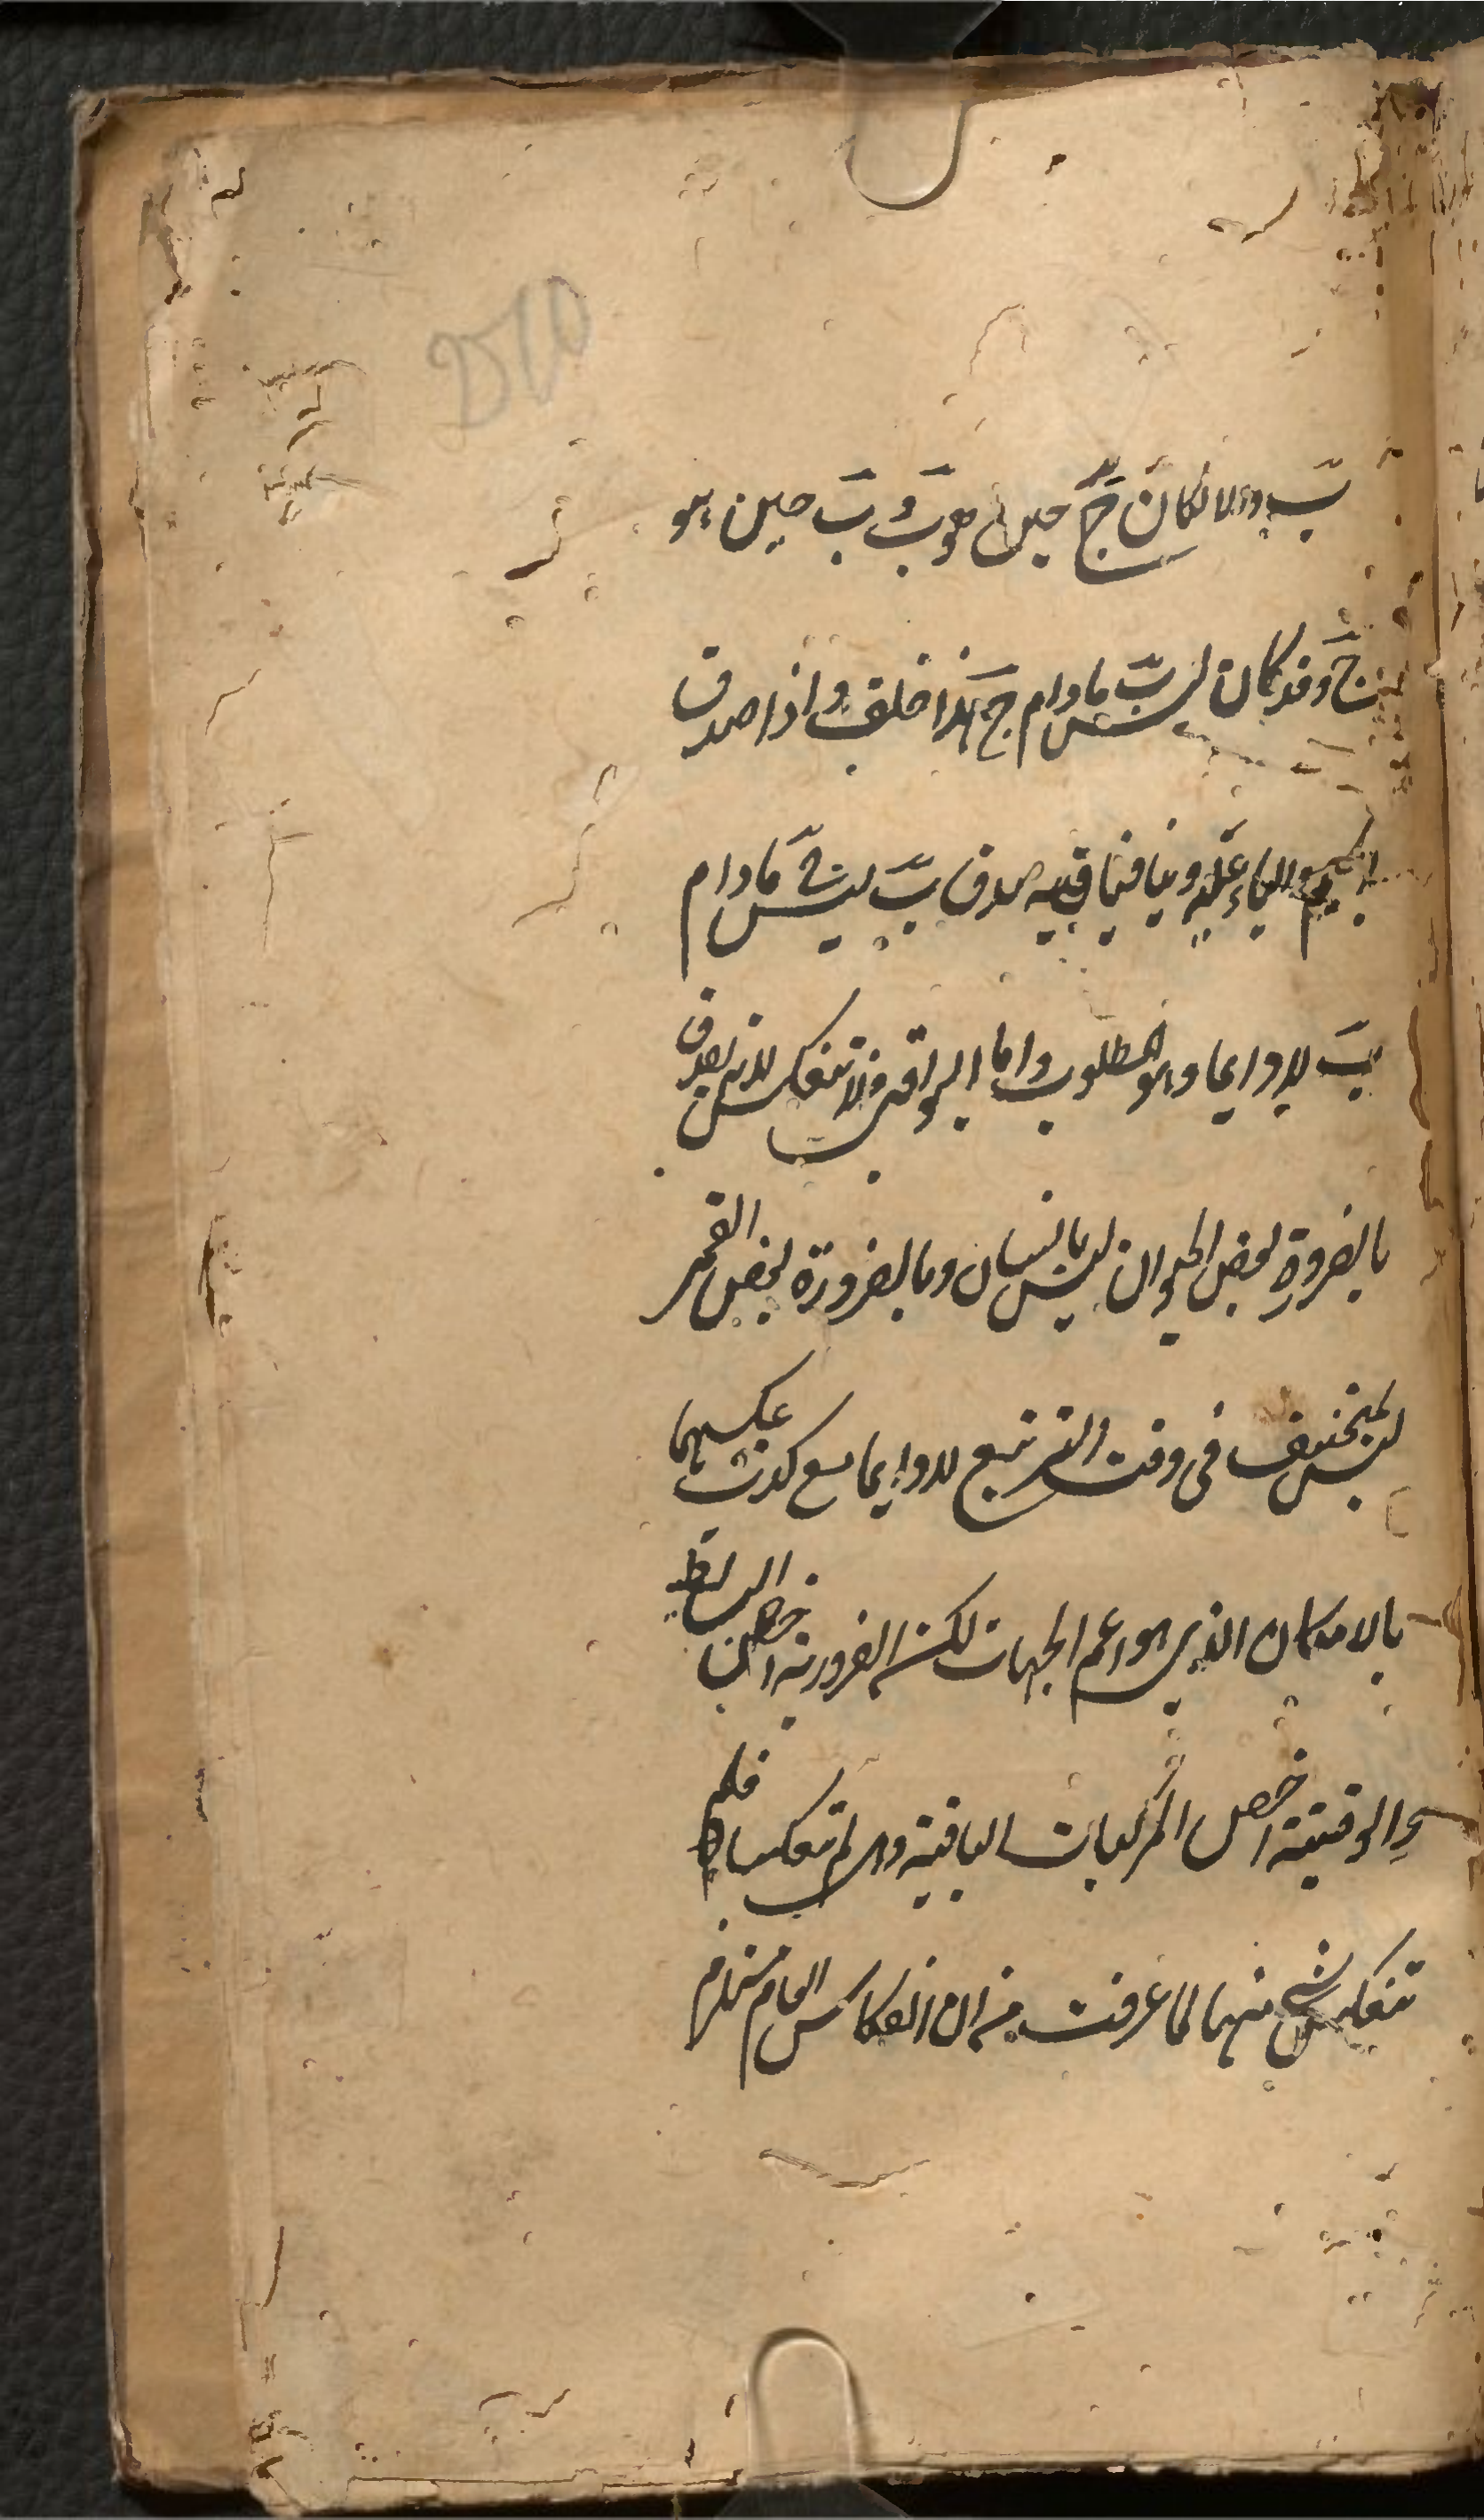 ب والا لكان ج حين هو ب و ب حين هو
ج وقد كان ليس ب ما دام ج هذا خلف واذا صدق
الجيم والباء عليه وتنافيا فيه صدق ب ليس ج ما دام
ب لا دايما وهو المطلوب واما البواقى فلا تنعكس لانه يصدق
بالضرورة بعض الحيوان ليس بانسان وبالضرورة بعض القمر
ليس بمنخسف فى وقت التربيع لا دايما مع كذب عكسهما
بالامكان الذى هو اعم الجهات لكن الضرورية اخص البسائط
والوقتية اخص المركبات الباقية ومتى لم تنعكسا لم
تنعكس شئ منهما لما عرفت من ان انعكاس العام مستلزم